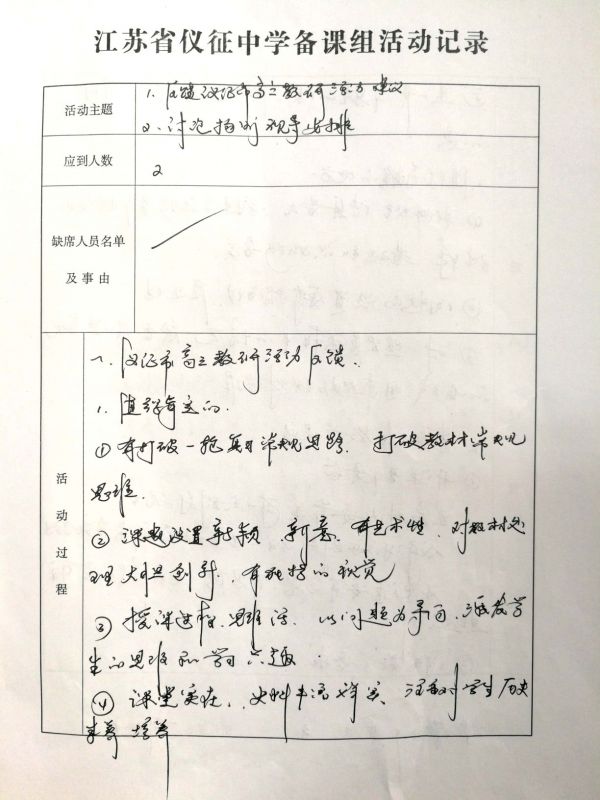 江苏省仪征中学备课组活动记录
活动主题
1. 反馈仪征市高三教研活动建议
2. 讨论 视导安排
应到人数
2
缺席人员名单
及事由
活动过程
一、仪征市高三教研活动反馈.
1. 值得肯定的.
①有打破一轮复习常规思路. 打破教材常规
思维.
②课题设置新颖、新意、有艺术性, 对教材处
理大胆创新, 有独特的视觉
③授课过程思维活. 以问题为导向, 激发学
生的思维和学习兴趣.
④课堂实在, 史料丰富详实、注重对学生历史
素养培养